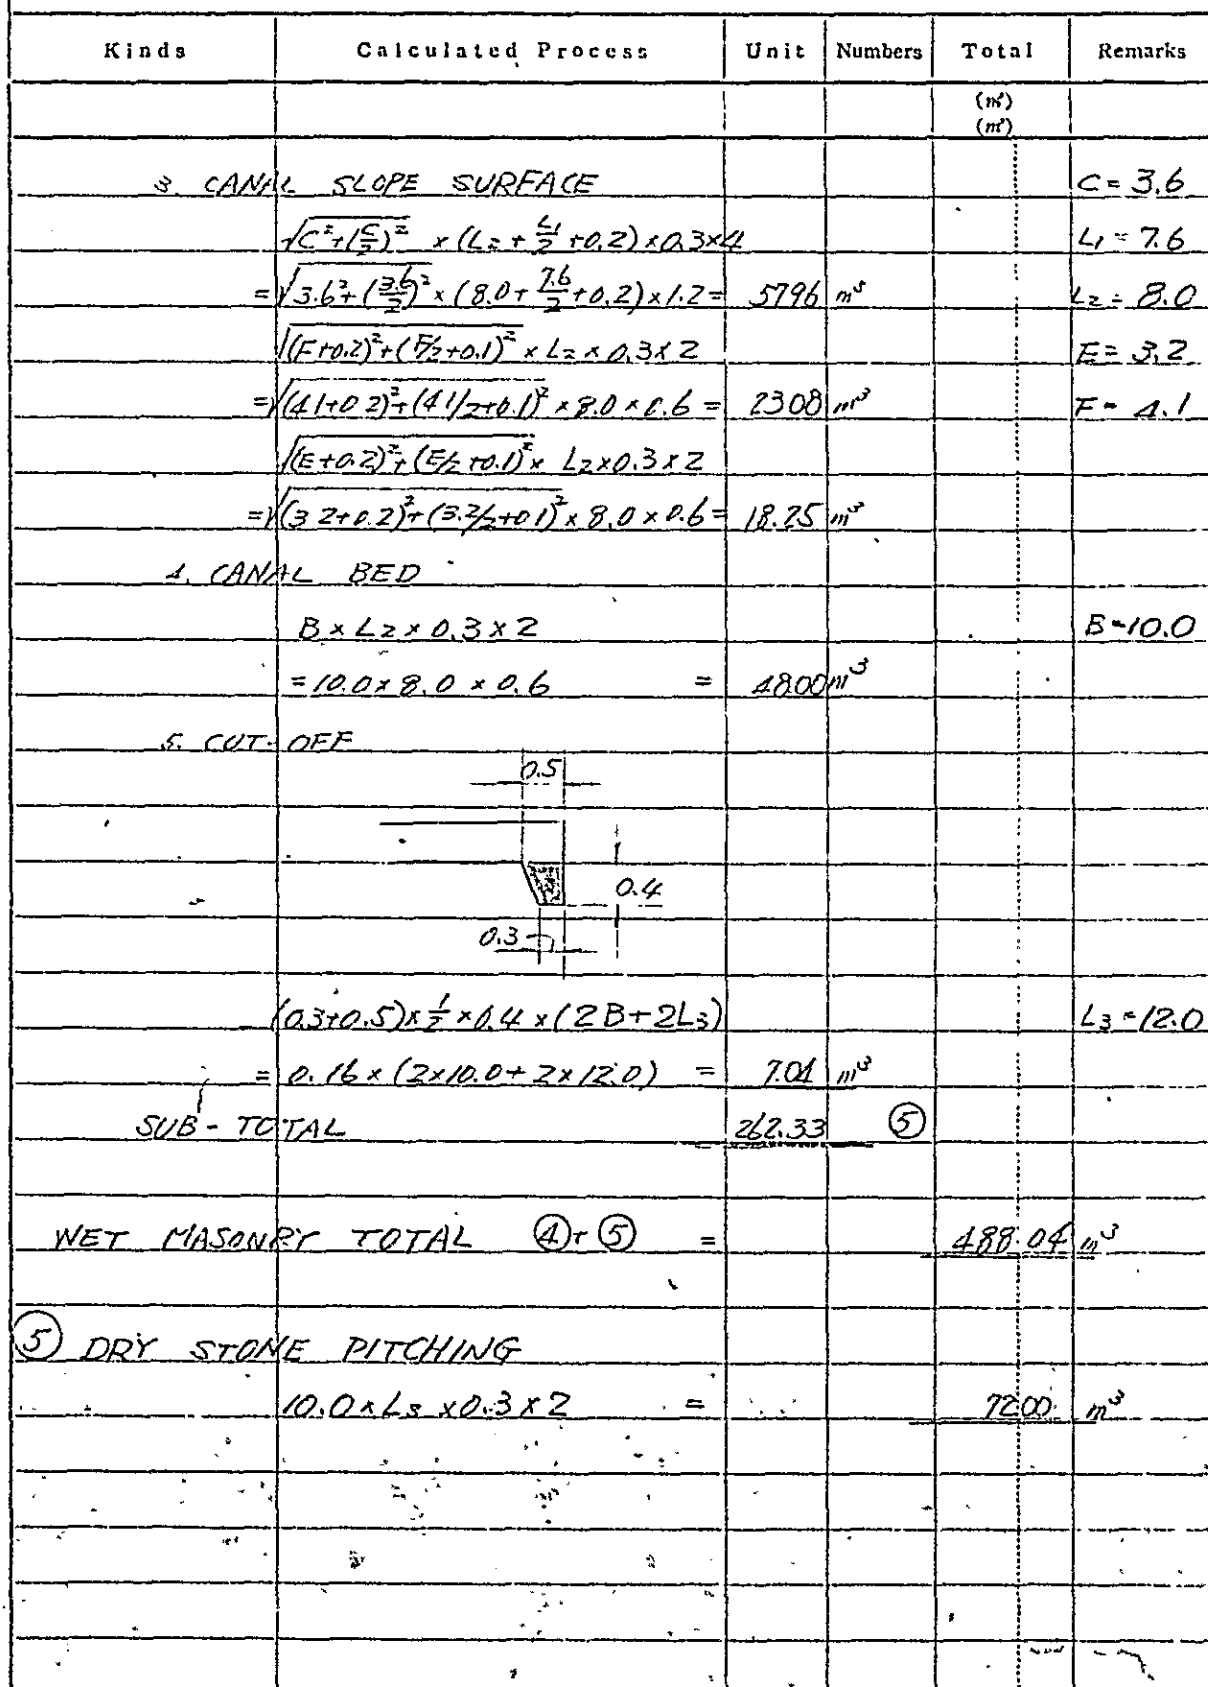 Kinds Calculated Process Unit Numbers Total Remarks
(m²)
(m³)
3. CANAL SLOPE SURFACE C = 3.6
√C²+(C/2)² × (L2 + L1/2 + 0.2) × 0.3×4 L1 = 7.6
= √3.6²+(3.6/2)² × (8.0 + 7.6/2 + 0.2) × 1.2 = 57.96 m³ L2 = 8.0
√(F+0.2)²+(F/2+0.1)² × L2 × 0.3×2 E = 3.2
= √(4.1+0.2)²+(4.1/2+0.1)² × 8.0 × 0.6 = 23.08 m³ F = 4.1
√(E+0.2)²+(E/2+0.1)² × L2×0.3×2
= √(3.2+0.2)²+(3.2/2+0.1)² × 8.0 × 0.6 = 18.25 m³
4. CANAL BED
B × L2 × 0.3 × 2 B = 10.0
= 10.0 × 8.0 × 0.6 = 48.00 m³
5. CUT-OFF
0.5
0.4
0.3
(0.3+0.5) × 1/2 × 0.4 × (2B + 2L3) L3 = 12.0
= 0.16 × (2×10.0 + 2×12.0) = 7.04 m³
SUB-TOTAL 262.33 ⑤
WET MASONRY TOTAL ④+⑤ = 488.04 m³
⑤ DRY STONE PITCHING
10.0 × L3 × 0.3 × 2 = 72.00 m³